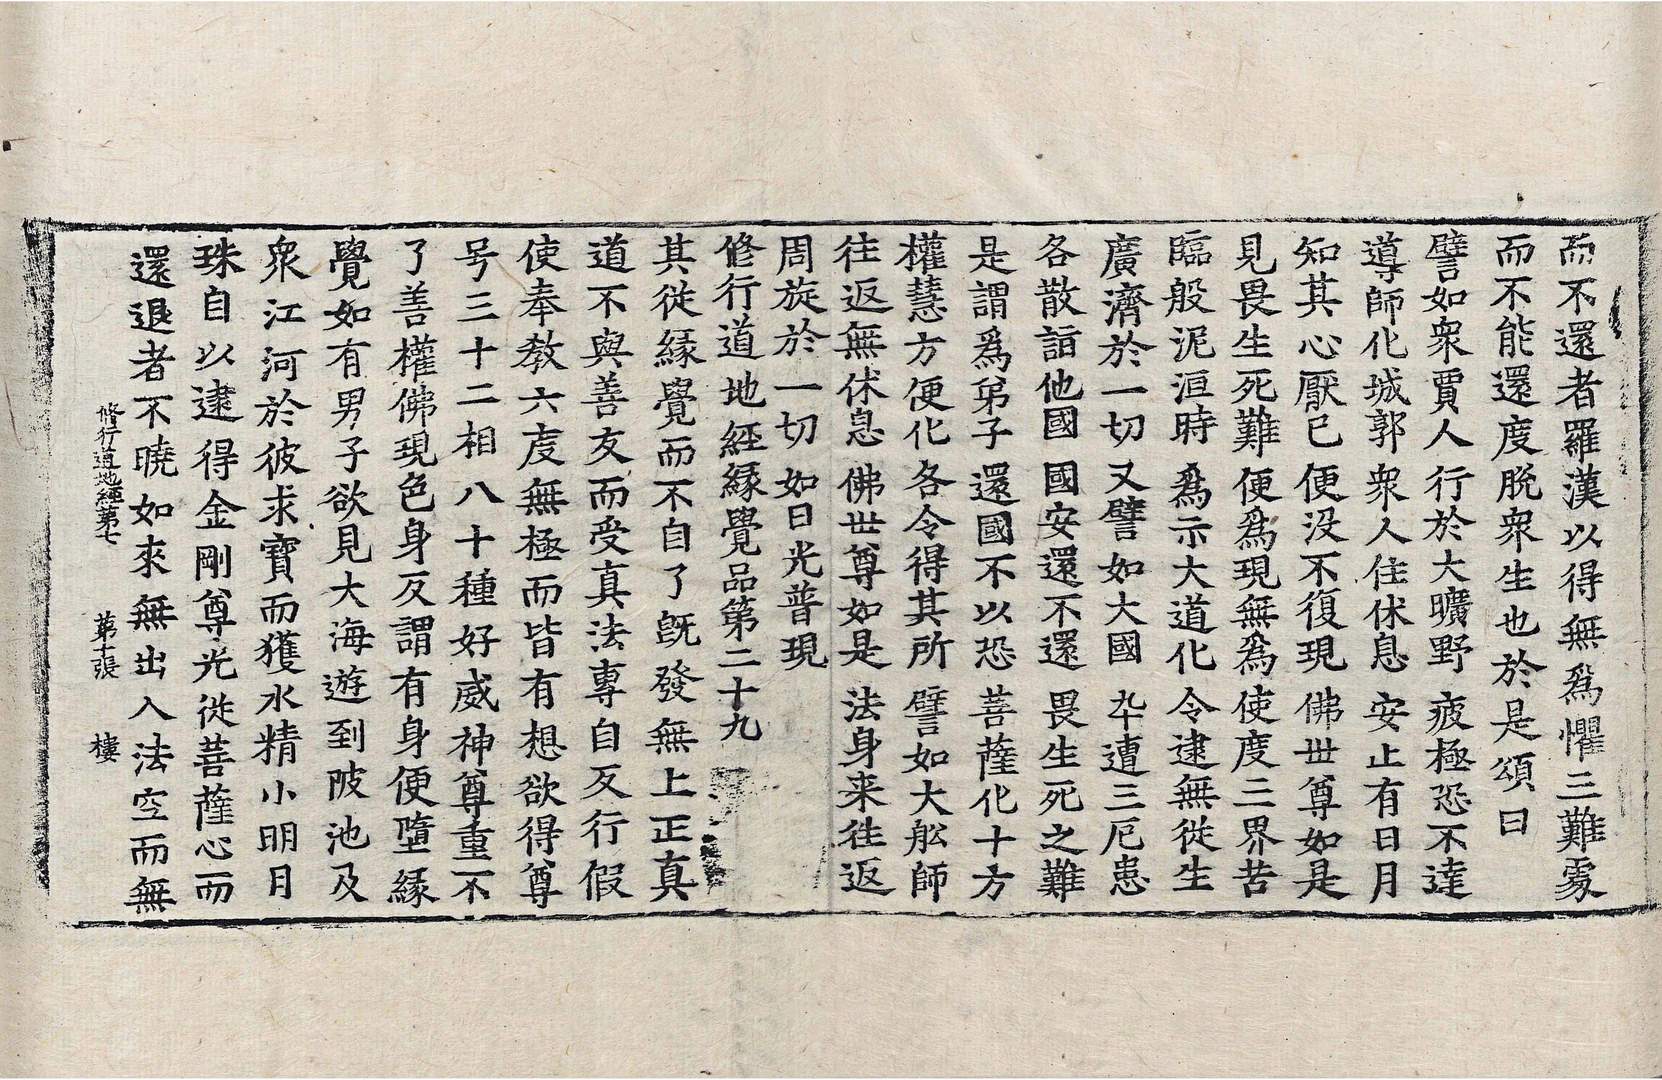 而不還者羅漢以得無爲懼三難處
而不能還度脫衆生也於是頌曰
譬如衆賈人行於大曠野 疲極恐不達
導師化城郭 衆人住休息 安止有日月
知其心厭已 便没不復現 佛世尊如是
見畏生死難 便爲現無爲 使度三界苦
臨般泥洹時 爲示大道化 令逮無從生
廣濟於一切 又譬如大國 卒遭三厄患
各散詣他國 國安還不還 畏生死之難
是謂爲弟子 還國不以恐 菩薩化十方
權慧方便化 各令得其所 譬如大舩師
往返無休息 佛世尊如是 法身来往返
周旋於一切 如日光普現
修行道地經緣覺品第二十九
其從緣覺而不自了旣發無上正真
道不與善友而受真法專自反行假
使奉敎六度無極而皆有想欲得尊
号三十二相八十種好威神尊重不
了善權佛現色身反謂有身便墮緣
覺如有男子欲見大海遊到陂池及
衆江河於彼求寶而獲水精小明月
珠自以逮得金剛尊光從菩薩心而
還退者不曉如來無出入法空而無
修行道地經第七 第十張 樓